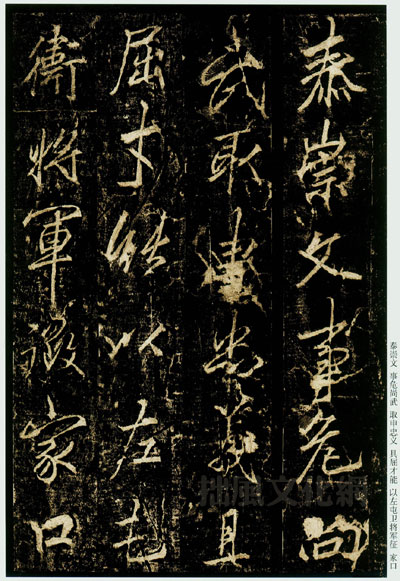 泰崇文事危尚
武取忠義且
屈才能以左屯
衛將軍徵家口
泰崇文 事危尚武 取申忠义 且屈才能 以左屯卫将军征 家口
拙風文化網